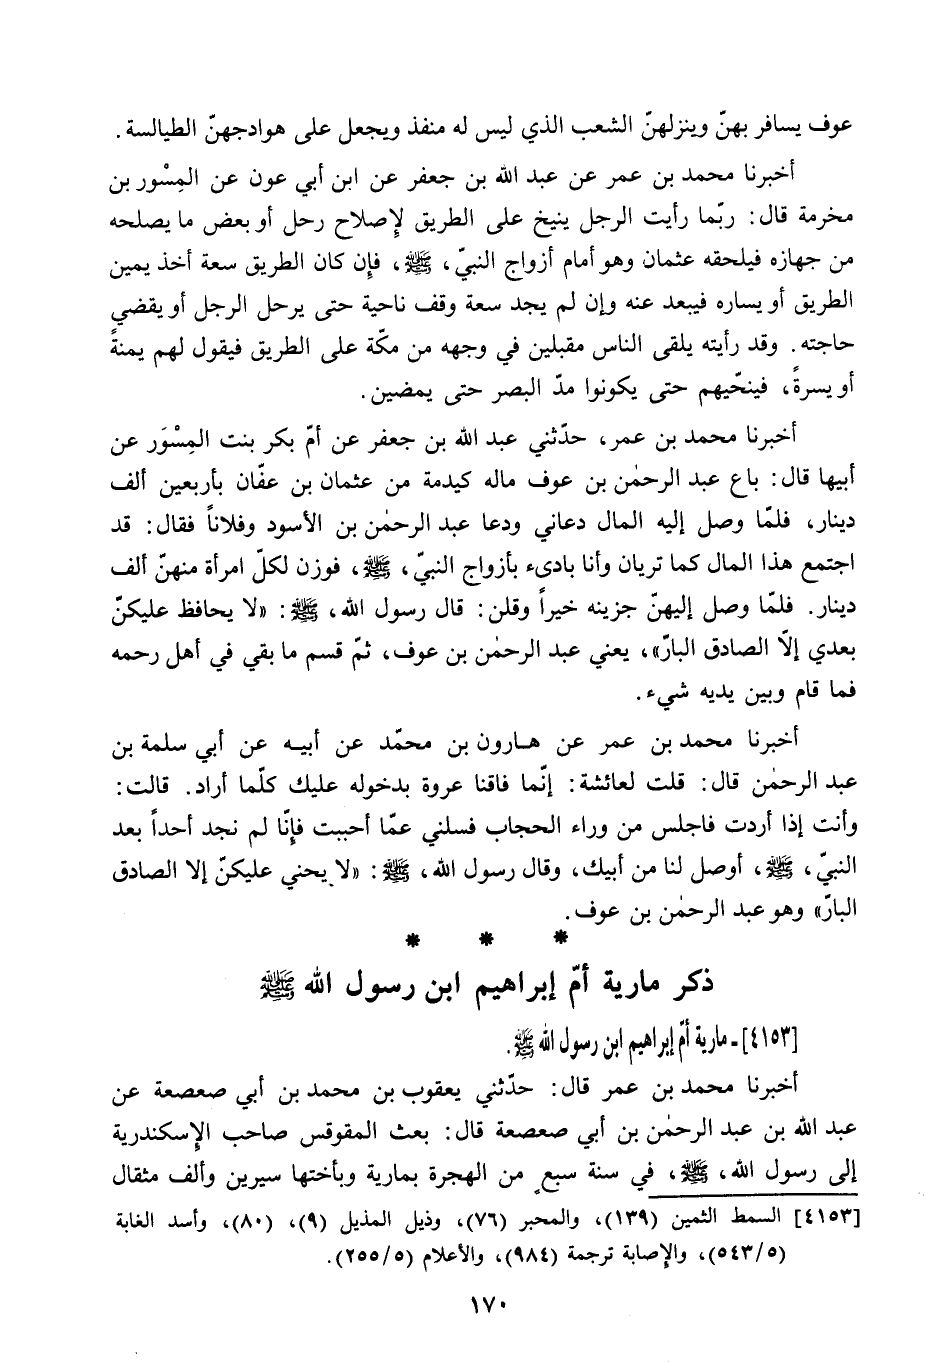 عوف يسافر بهنّ وينزلهنّ الشعب الذي ليس له منفذ ويجعل على هوادجهنّ الطيالسة.
أخبرنا محمد بن عمر عن عبد الله بن جعفر عن ابن أبي عون عن المِسْور بن
مخرمة قال: ربّما رأيت الرجل ينيخ على الطريق لإصلاح رحل أو بعض ما يصلحه
من جهازه فيلحقه عثمان وهو أمام أزواج النبيّ، ﷺ، فإن كان الطريق سعة أخذ يمين
الطريق أو يساره فيبعد عنه وإن لم يجد سعة وقف ناحية حتى يرحل الرجل أو يقضي
حاجته. وقد رأيته يلقى الناس مقبلين في وجهه من مكّة على الطريق فيقول لهم يمنةً
أو يسرةً، فينحّيهم حتى يكونوا مدّ البصر حتى يمضين.
أخبرنا محمد بن عمر، حدّثني عبد الله بن جعفر عن أمّ بكر بنت المِسْوَر عن
أبيها قال: باع عبد الرحمٰن بن عوف ماله كيدمة من عثمان بن عفّان بأربعين ألف
دينار، فلمّا وصل إليه المال دعاني ودعا عبد الرحمٰن بن الأسود وفلاناً فقال: قد
اجتمع هذا المال كما تريان وأنا بادىء بأزواج النبيّ، ﷺ، فوزن لكلّ امرأة منهنّ ألف
دينار. فلمّا وصل إليهنّ جزينه خيراً وقلن: قال رسول الله، ﷺ: «لا يحافظ عليكنّ
بعدي إلاّ الصادق البارّ»، يعني عبد الرحمٰن بن عوف، ثمّ قسم ما بقي في أهل رحمه
فما قام وبين يديه شيء.
أخبرنا محمد بن عمر عن هارون بن محمّد عن أبيه عن أبي سلمة بن
عبد الرحمٰن قال: قلت لعائشة: إنّما فاقنا عروة بدخوله عليك كلّما أراد. قالت:
وأنت إذا أردت فاجلس من وراء الحجاب فسلني عمّا أحببت فإنّا لم نجد أحداً بعد
النبيّ، ﷺ، أوصل لنا من أبيك، وقال رسول الله، ﷺ: «لا يحني عليكنّ إلا الصادق
البارّ» وهو عبد الرحمٰن بن عوف.
* * *
ذكر مارية أمّ إبراهيم ابن رسول الله ﷺ
[٤١٥٣] - مارية أمّ إبراهيم ابن رسول الله ﷺ.
أخبرنا محمد بن عمر قال: حدّثني يعقوب بن محمد بن أبي صعصعة عن
عبد الله بن عبد الرحمٰن بن أبي صعصعة قال: بعث المقوقس صاحب الإسكندرية
إلى رسول الله، ﷺ، في سنة سبعٍ من الهجرة بمارية وبأختها سيرين وألف مثقال
[٤١٥٣] السمط الثمين (١٣٩)، والمحبر (٧٦)، وذيل المذيل (٩)، (٨٠)، وأسد الغابة
(٥٤٣/٥)، والإصابة ترجمة (٩٨٤)، والأعلام (٢٥٥/٥).
١٧٠